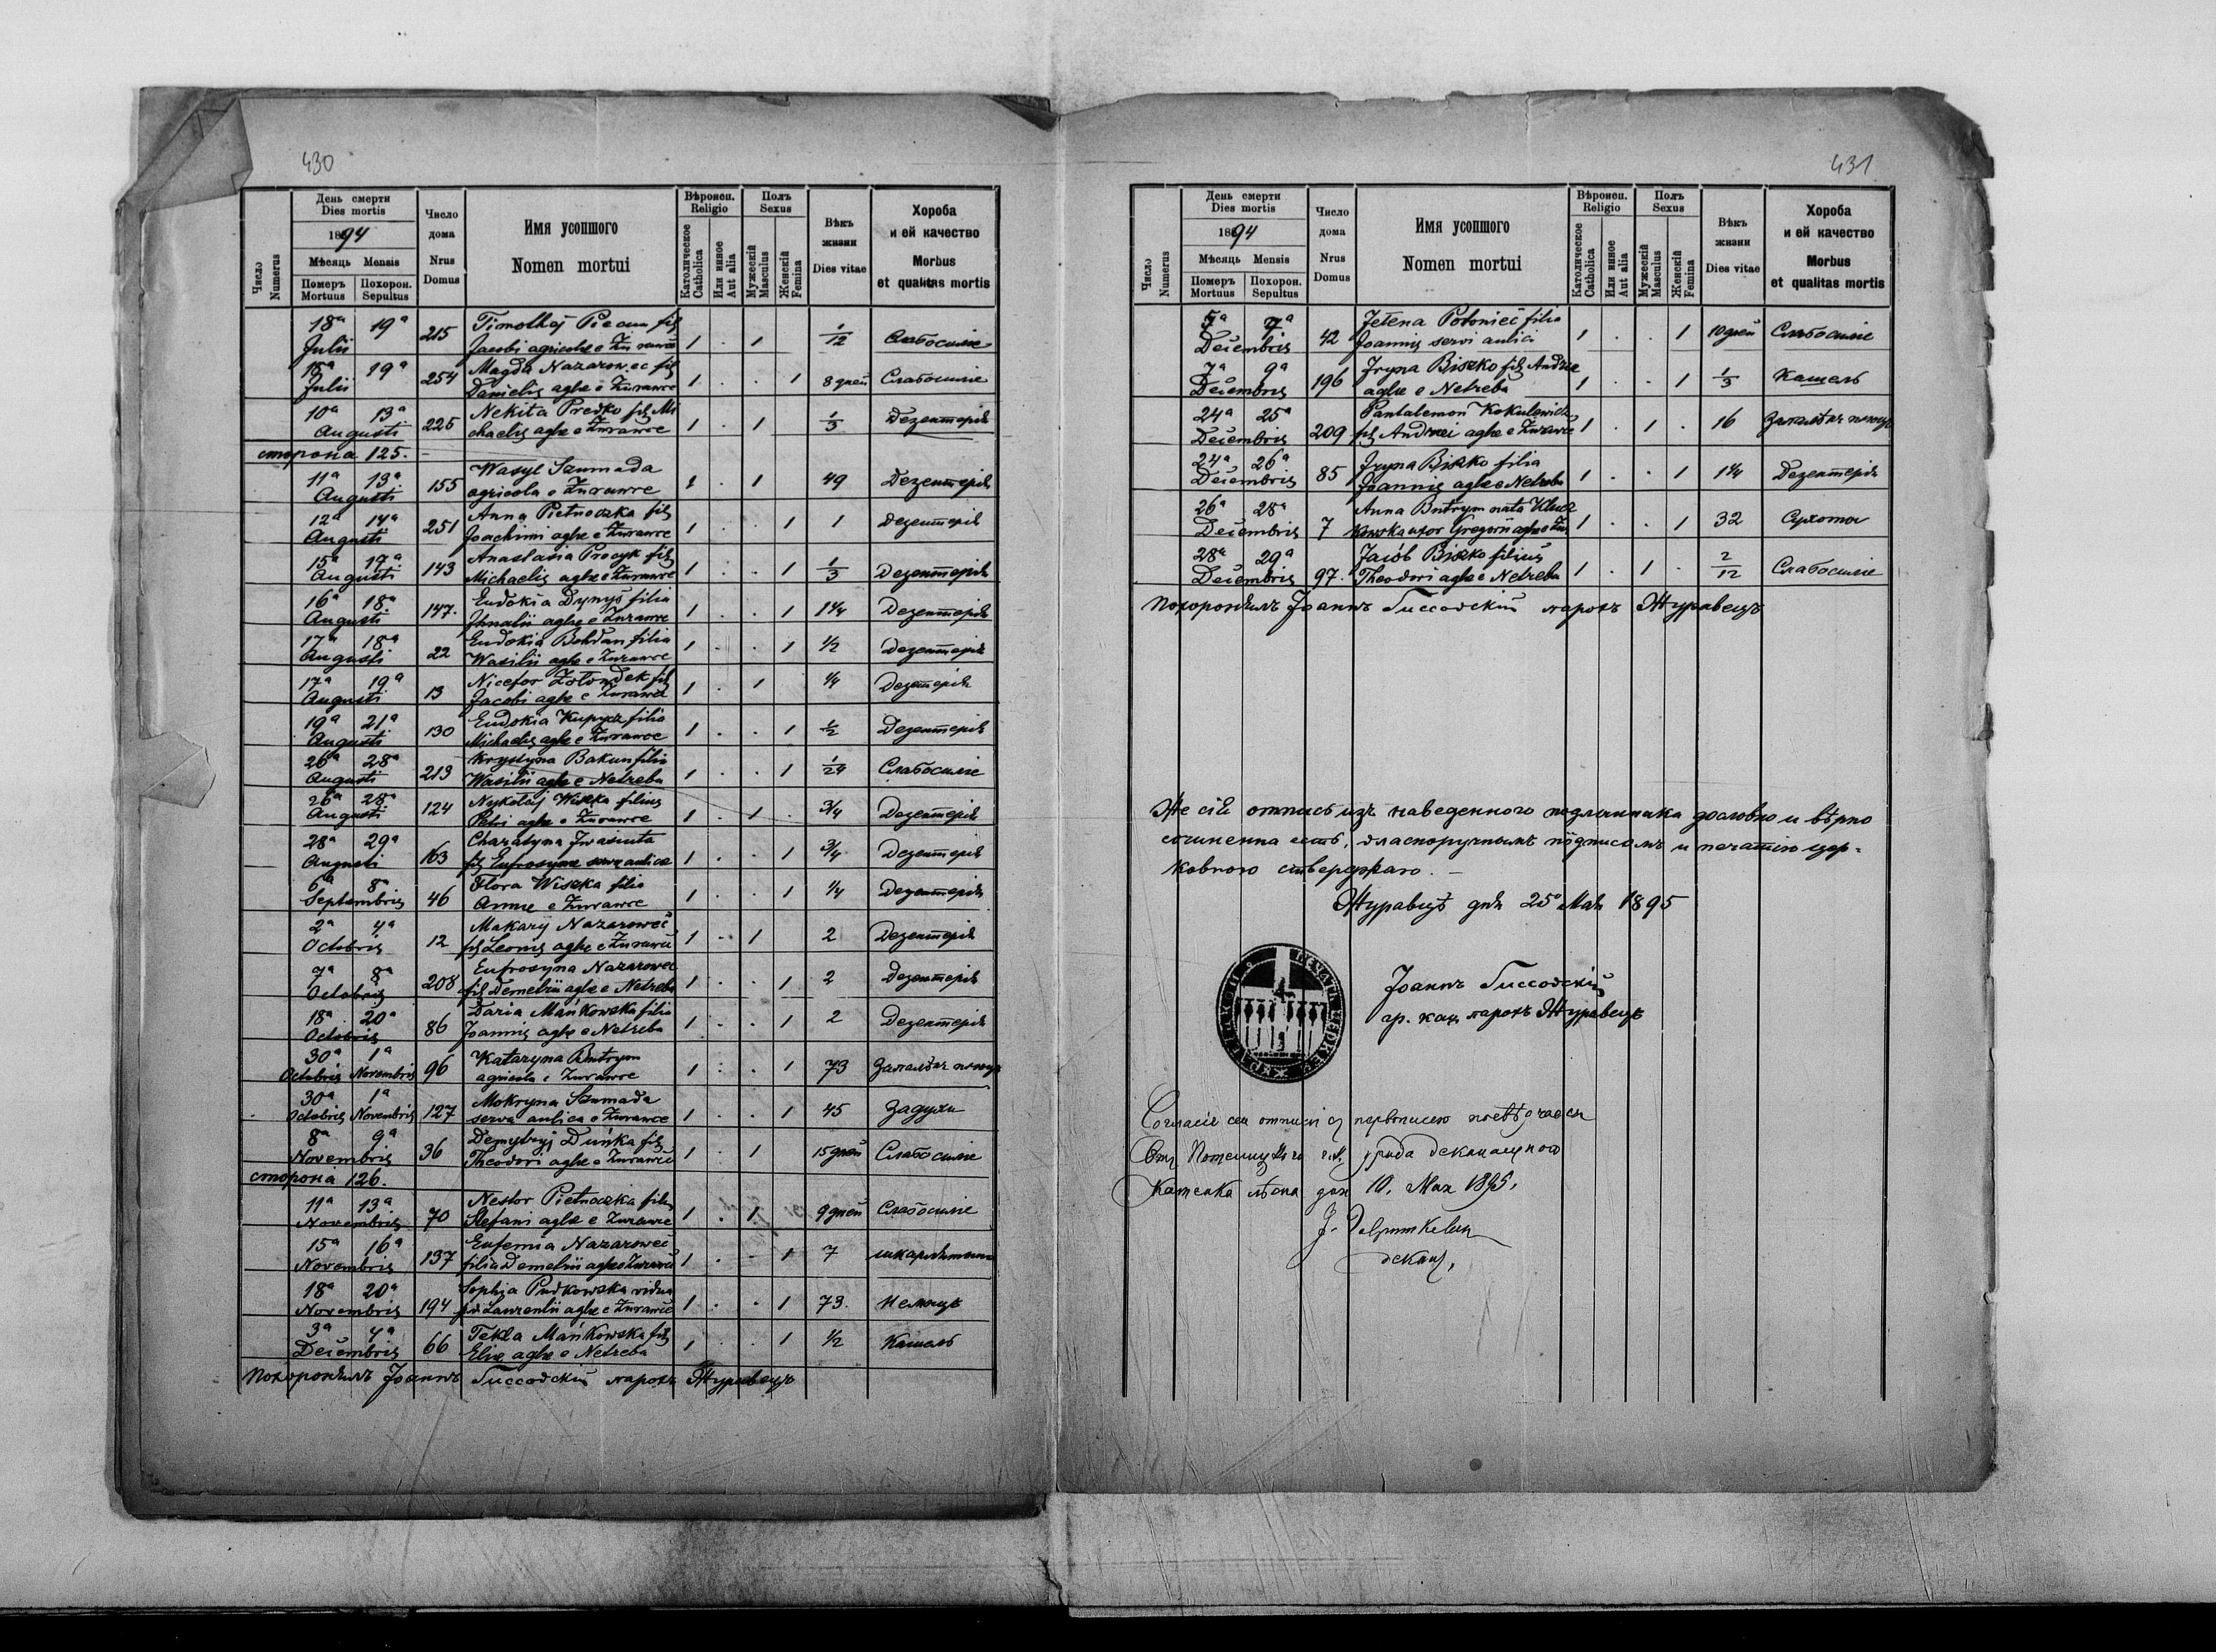 430
День смерти
Dies mortis
1894
Мѣсяць Mensis
Число
Numerus
Померъ
Mortuus
Похорон.
Sepultus
Число
дома
Nrus
Domus
Имя усопшого
Nomen mortui
Вѣроисп.
Religio
Католическое
Catholica
Или инное
Aut alia
Полъ
Sexus
Мужескій
Masculus
Женскій
Femina
Вѣкъ
жизни
Dies vitae
Хороба
и ей качество
Morbus
et qualitas mortis
18ª 19ª 215 Timothej fil
Julii Jacobi agricolae e Żurawce 1 . 1 1/12 Слабосиліе
18ª 19ª 254 Magda Nazarowec fil
Julii Danielis aglae e Żurawce 1 . . 1 8 дней Слабосиліе
10ª 13ª 225 Nekita Predko fil Mi
Augusti chaelis aglae e Żurawce 1 . 1 1/3 Дезентерія
сторона 125.
11ª 13ª 155 Wasyl Szumada
Augusti agricola e Żurawce 1 . 1 49 Дезентерія
12ª 14ª 251 Anna Pietnoczka fil
Augusti Joachimi aglae e Żurawce 1 . . 1 1 Дезентерія
15ª 17ª 143 Anastasia Procyk fil
Augusti Michaelis aglae e Żurawce 1 . . 1 1/3 Дезентерія
16ª 18ª 147. Eudokia Dynyś filia
Augusti Ihnatii aglae e Żurawce 1 . . 1 1¼ Дезентерія
17ª 18ª 22 Eudokia Bohdan filia
Augusti Wasilii aglae e Żurawce 1 . . 1 1/2 Дезентерія
17ª 19ª 13 Nicefor Żołondek fil
Augusti Jacobi aglae e Żurawce 1 . 1 1/4 Дезентерія
19ª 21ª 130 Eudokia Kupycz filia
Augusti Michaelis aglae e Żurawce 1 . . 1 1/2 Дезентерія
26ª 28ª 213 Krystyna Bakun filia
Augusti Wasilii aglae e Netreba 1 . . 1 1/24 Слабосиліе
26ª 28ª 124 Nykołaj Wiszka filius
Augusti Petri aglae e Żurawce 1 . 1 . 3/4 Дезентерія
28ª 29ª 163 Charatyna Iwasiuta
Augusti fil Eufrosynae servae aulicae 1 . . 1 3/4 Дезентерія
6ª 8ª 46 Flora Wiszka filia
Septembris Annae e Żurawce 1 . . 1 1/4 Дезентерія
2ª 4ª 12 Makarij Nazaroweć
Octobris fil Leonis aglae e Żurawce 1 . 1 2 Дезентерія
7ª 8ª 208 Eufrosyna Nazarowec
Octobris fil Demetrii aglae e Netreba 1 . . 1 2 Дезентерія
18ª 20ª 86 Daria Mańkowska filia
Octobris Joannis aglae e Netreba 1 . . 1 2 Дезентерія
30ª 1ª 96 Katarzyna Butrym
Octobris Novembris agricola e Żurawce 1 . . 1 73
30ª 1ª 127 Mokryna Szumada
Octobris Novembris serva aulica e Żurawce 1 . . 1 45 Задуха
8ª 9ª 36 Demytryj Duńka fil
Novembris Theodori aglae e Żurawce 1 . 1 15 дней Слабосиліе
сторона 126.
11ª 13ª 70 Nestor Pietnoczka filius
Novembris Stefani aglae e Żurawce 1 . 1 9 дней Слабосиліе
15ª 16ª 137 Eufemia Nazaroweć
Novembris filia Demetrii aglae e Żurawce 1 . . 1 7 шкарлятина
18ª 20ª 194 Sophja Pudkowska vidua
Novembris Laurentii aglae e Żurawce 1 . . 1 73. Немощь
3ª 4ª 66 Tekla Mańkowska fil
Decembris Eliae aglae e Netreba 1 . . 1 1/2 Кашель
Похоронилъ Іоаннъ парохъ Журавецъ
431
День смерти
Dies mortis
1894
Мѣсяць Mensis
Число
Numerus
Померъ
Mortuus
Похорон.
Sepultus
Число
дома
Nrus
Domus
Имя усопшого
Nomen mortui
Вѣроисп.
Religio
Католическое
Catholica
Или инное
Aut alia
Полъ
Sexus
Мужескій
Masculus
Женскій
Femina
Вѣкъ
жизни
Dies vitae
Хороба
и ей качество
Morbus
et qualitas mortis
5ª 7ª 42 Jełena Połonieć filia
Decembris Joannis servi aulici 1 . . 1 10 дней Слабосиліе
7ª 9ª 196 Iryna Biszko fil Andreae
Decembris aglae e Netreba 1 . . 1 1/3 Кашель
24ª 25ª 209 Pantalemon Kokulewicz
Decembris fil Andreei aglae e Żurawce 1 . 1 . 16
24ª 26ª 85 Iryna Biszko filia
Decembris Joannis aglae e Netreba 1 . . 1 1¼ Дезентерія
26ª 28ª 7 Anna Butrym nata
Decembris uxor Gregorii aglae e Żur. 1 . . 1 32 Сухоты
28ª 29ª 97. Jacób Biszko filius
Decembris Theodori aglae e Netreba 1 . 1 . 2/12 Слабосиліе
Похоронилъ Іоаннъ парохъ Журавецъ
Же сія отпись изъ наведенного подлинника дословно и вѣрно
сочиненна есть, власноручнымъ подписомъ и печатію цер-
ковною стверджаю. –
Журавцѣ дня 25º Мая 1895
Іоаннъ
гр. кат. парохъ Журавецъ
Согласіе сеи отписи съ первописею посвѣдчаеся
Отъ уряда деканального
Каменка дня 10. Мая 1895.
деканъ.